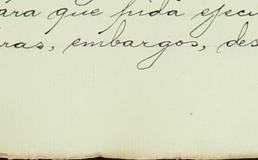 ara que pida ejecu
iras, embargos, des